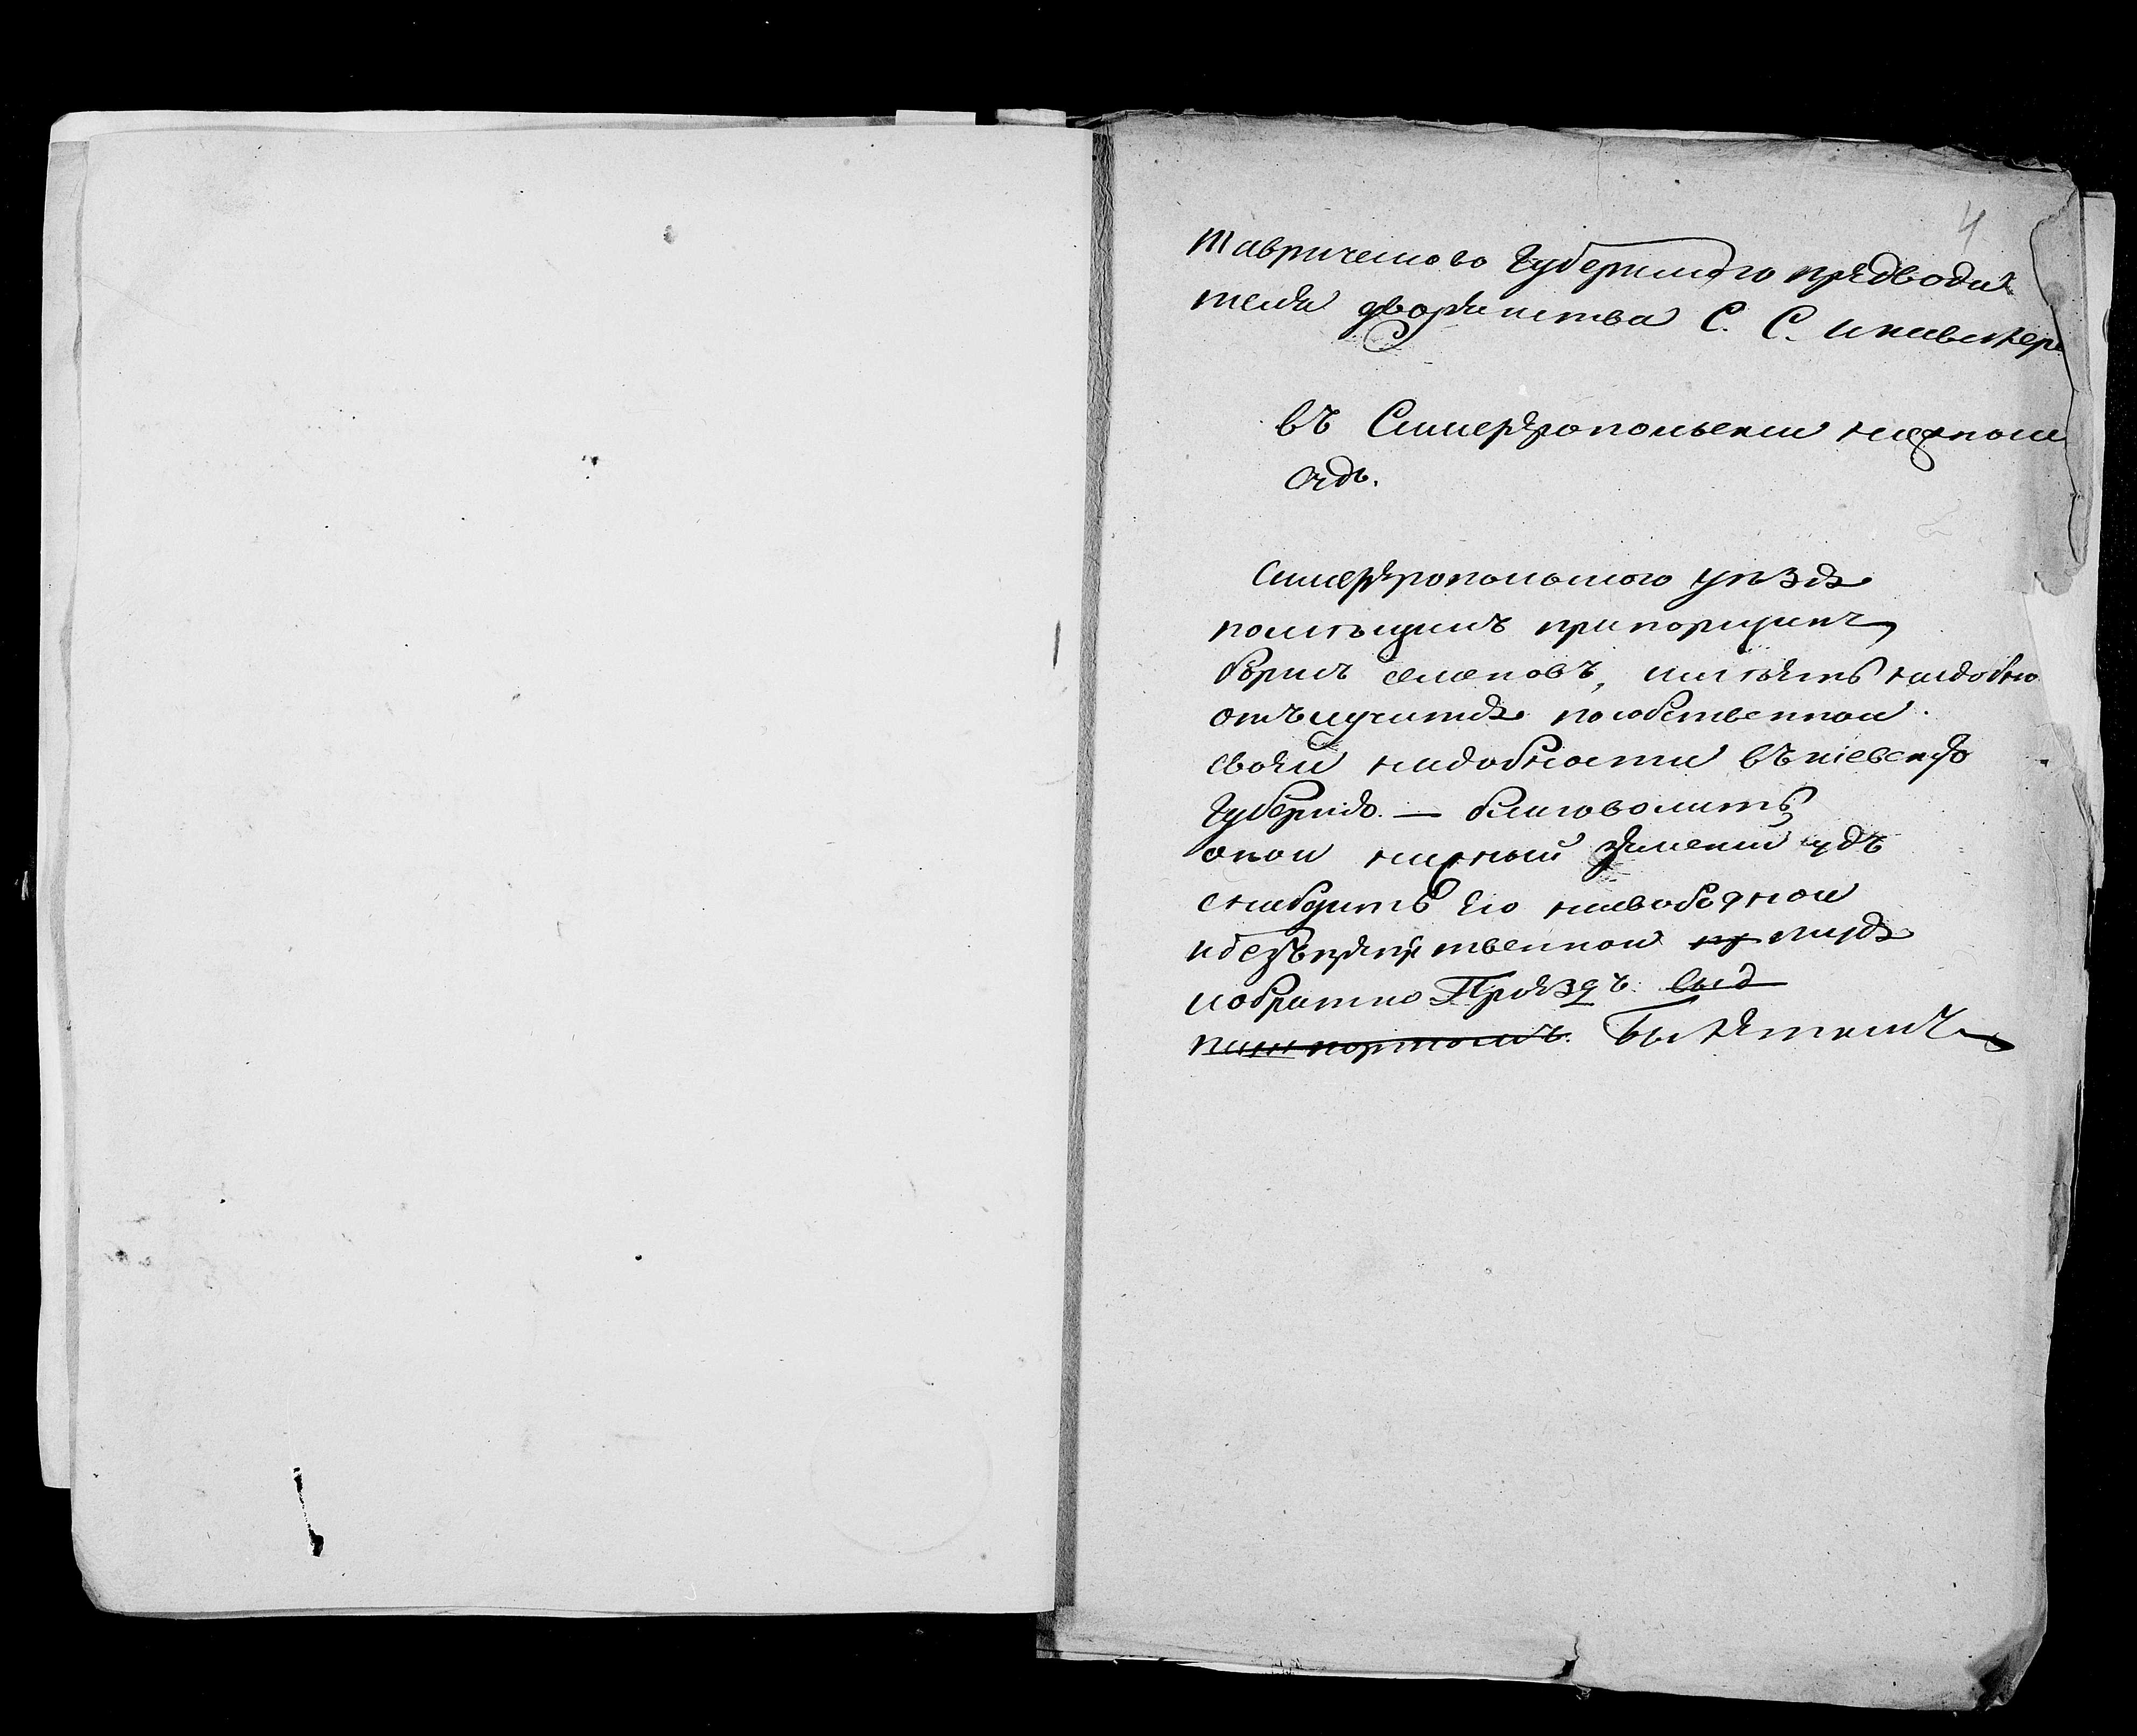 4
Таврическово Губернского предводи
теля дворянства С. С. и кавалера
въ Симферопольскии нижнои
судъ.
Симферопольского уѣзда
помѣщикъ прапорщикъ
борисъ семеновъ, имѣетъ надобно
отълучится пособственнои
своеи надобности въ киевскую
Губерню. — благоволитъ
онои нижный земский судъ
снабдить его насвободнои
ибезъпрепятственнои туда
иобратно Проездъ. выд
пашпортомъ. Билетомъ